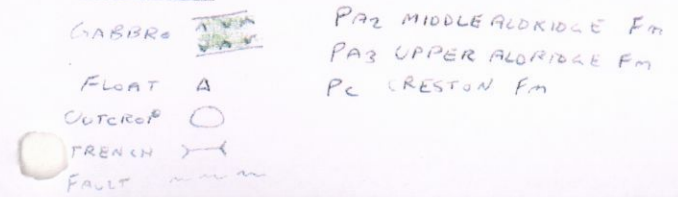 GABBRO
FLOAT
OUTCROP
TRENCH
FAULT
PA2 MIDDLE ALDRIDGE Fm
PA3 UPPER ALDRIDGE Fm
Pc CRESTON Fm